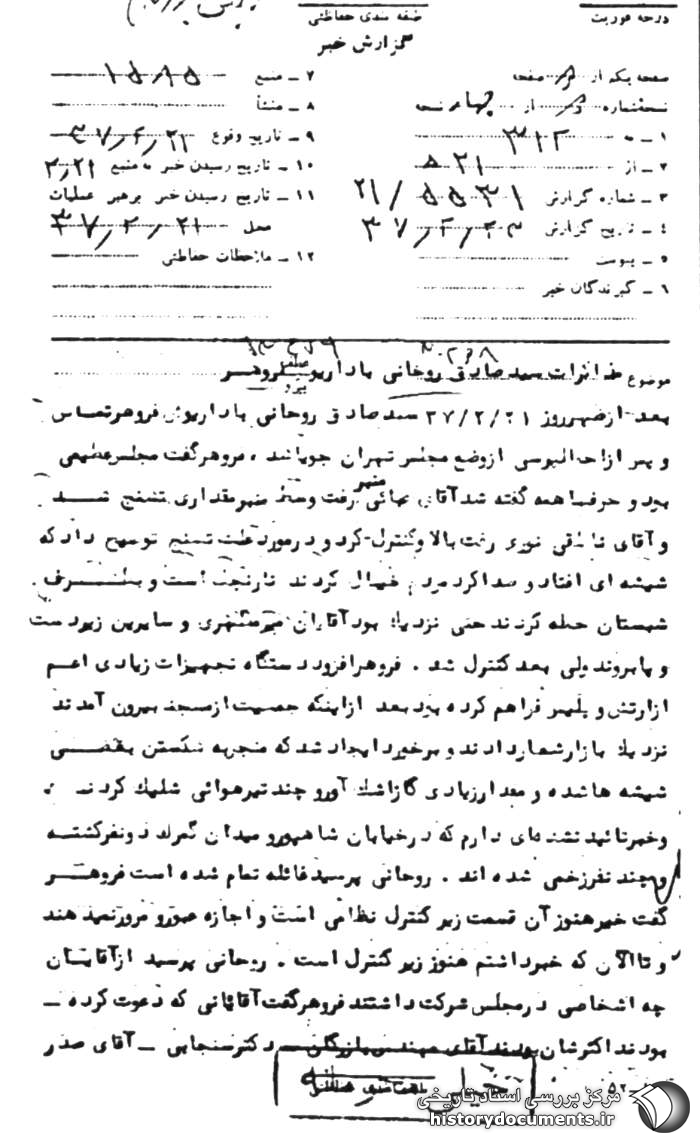 درجه فوریت
طبقه بندی حفاظتی
گزارش خبر
صفحه یکم از صفحه
نسخه شماره از چهار نسخه
۱ ـ به ۳۱۲
۲ ـ از ۵۲۱
۳ ـ شماره گزارش ۲۱/۵۵۳۱
۴ ـ تاریخ گزارش ۳۷/۲/۲۳
۵ ـ پیوست
۶ ـ گیرندگان خبر
۷ ـ منبع ۱۵۸۵
۸ ـ منشأ
۹ ـ تاریخ وقوع ۳۷/۲/۲۱
۱۰ ـ تاریخ رسیدن خبر به منبع ۲/۲۱
۱۱ ـ تاریخ رسیدن خبر برهبر عملیات
محل ۳۷/۲/۲۱
۱۲ ـ ملاحظات حفاظتی
موضوع مذاکرات سید صادق روحانی با داریوش فروهر
بعد از ظهر روز ۳۷/۲/۲۱ سید صادق روحانی با داریوش فروهر تماس
و پس از احوالپرسی از وضع مجلس تهران جویا شد ، فروهر گفت مجلس عظیمی
بود و حرفها همه گفته شد آقای منبر رفت وسط منبر مقداری تشنج شد
و آقای ناطق نوری رفت بالا و کنترل کرد و در مورد علت تشنج توضیح داد که
شیشه ای افتاد و صدا کرد مردم خیال کردند نارنجک است و بطرف
شبستان حمله کردند حتی نزدیک بود آقایان و سایرین زیر دست
و پا بروند ولی بعد کنترل شد . فروهر افزود دستگاه تجهیزات زیادی اعم
از ارتش و پلیس فراهم کرده بود بعد از اینکه جمعیت از مسجد بیرون آمدند
نزدیک بازار شعار دادند و برخورد ایجاد شد که منجر به شکستن بعضی
شیشه ها شده و مقدار زیادی گاز اشک آور و چند تیر هوائی شلیک کردند .
و خبر تائید نشده ای دارم که در خیابان شاهپور و میدان گمرک دو نفر کشته
و چند نفر زخمی شده اند . روحانی پرسید غائله تمام شده است فروهر
گفت خیر هنوز آن قسمت زیر کنترل نظامی است و اجازه عبور و مرور نمیدهند
و تا الآن که خبر داشتم هنوز زیر کنترل است . روحانی پرسید از آقایان
چه اشخاصی در مجلس شرکت داشتند فروهر گفت آقایانی که دعوت کرده ـ
بودند اکثرشان بودند آقای مهندس بازرگان ـ دکتر سنجابی ـ آقای صدر
خیلی محرمانه
مرکز بررسی اسناد تاریخی
historydocuments.ir